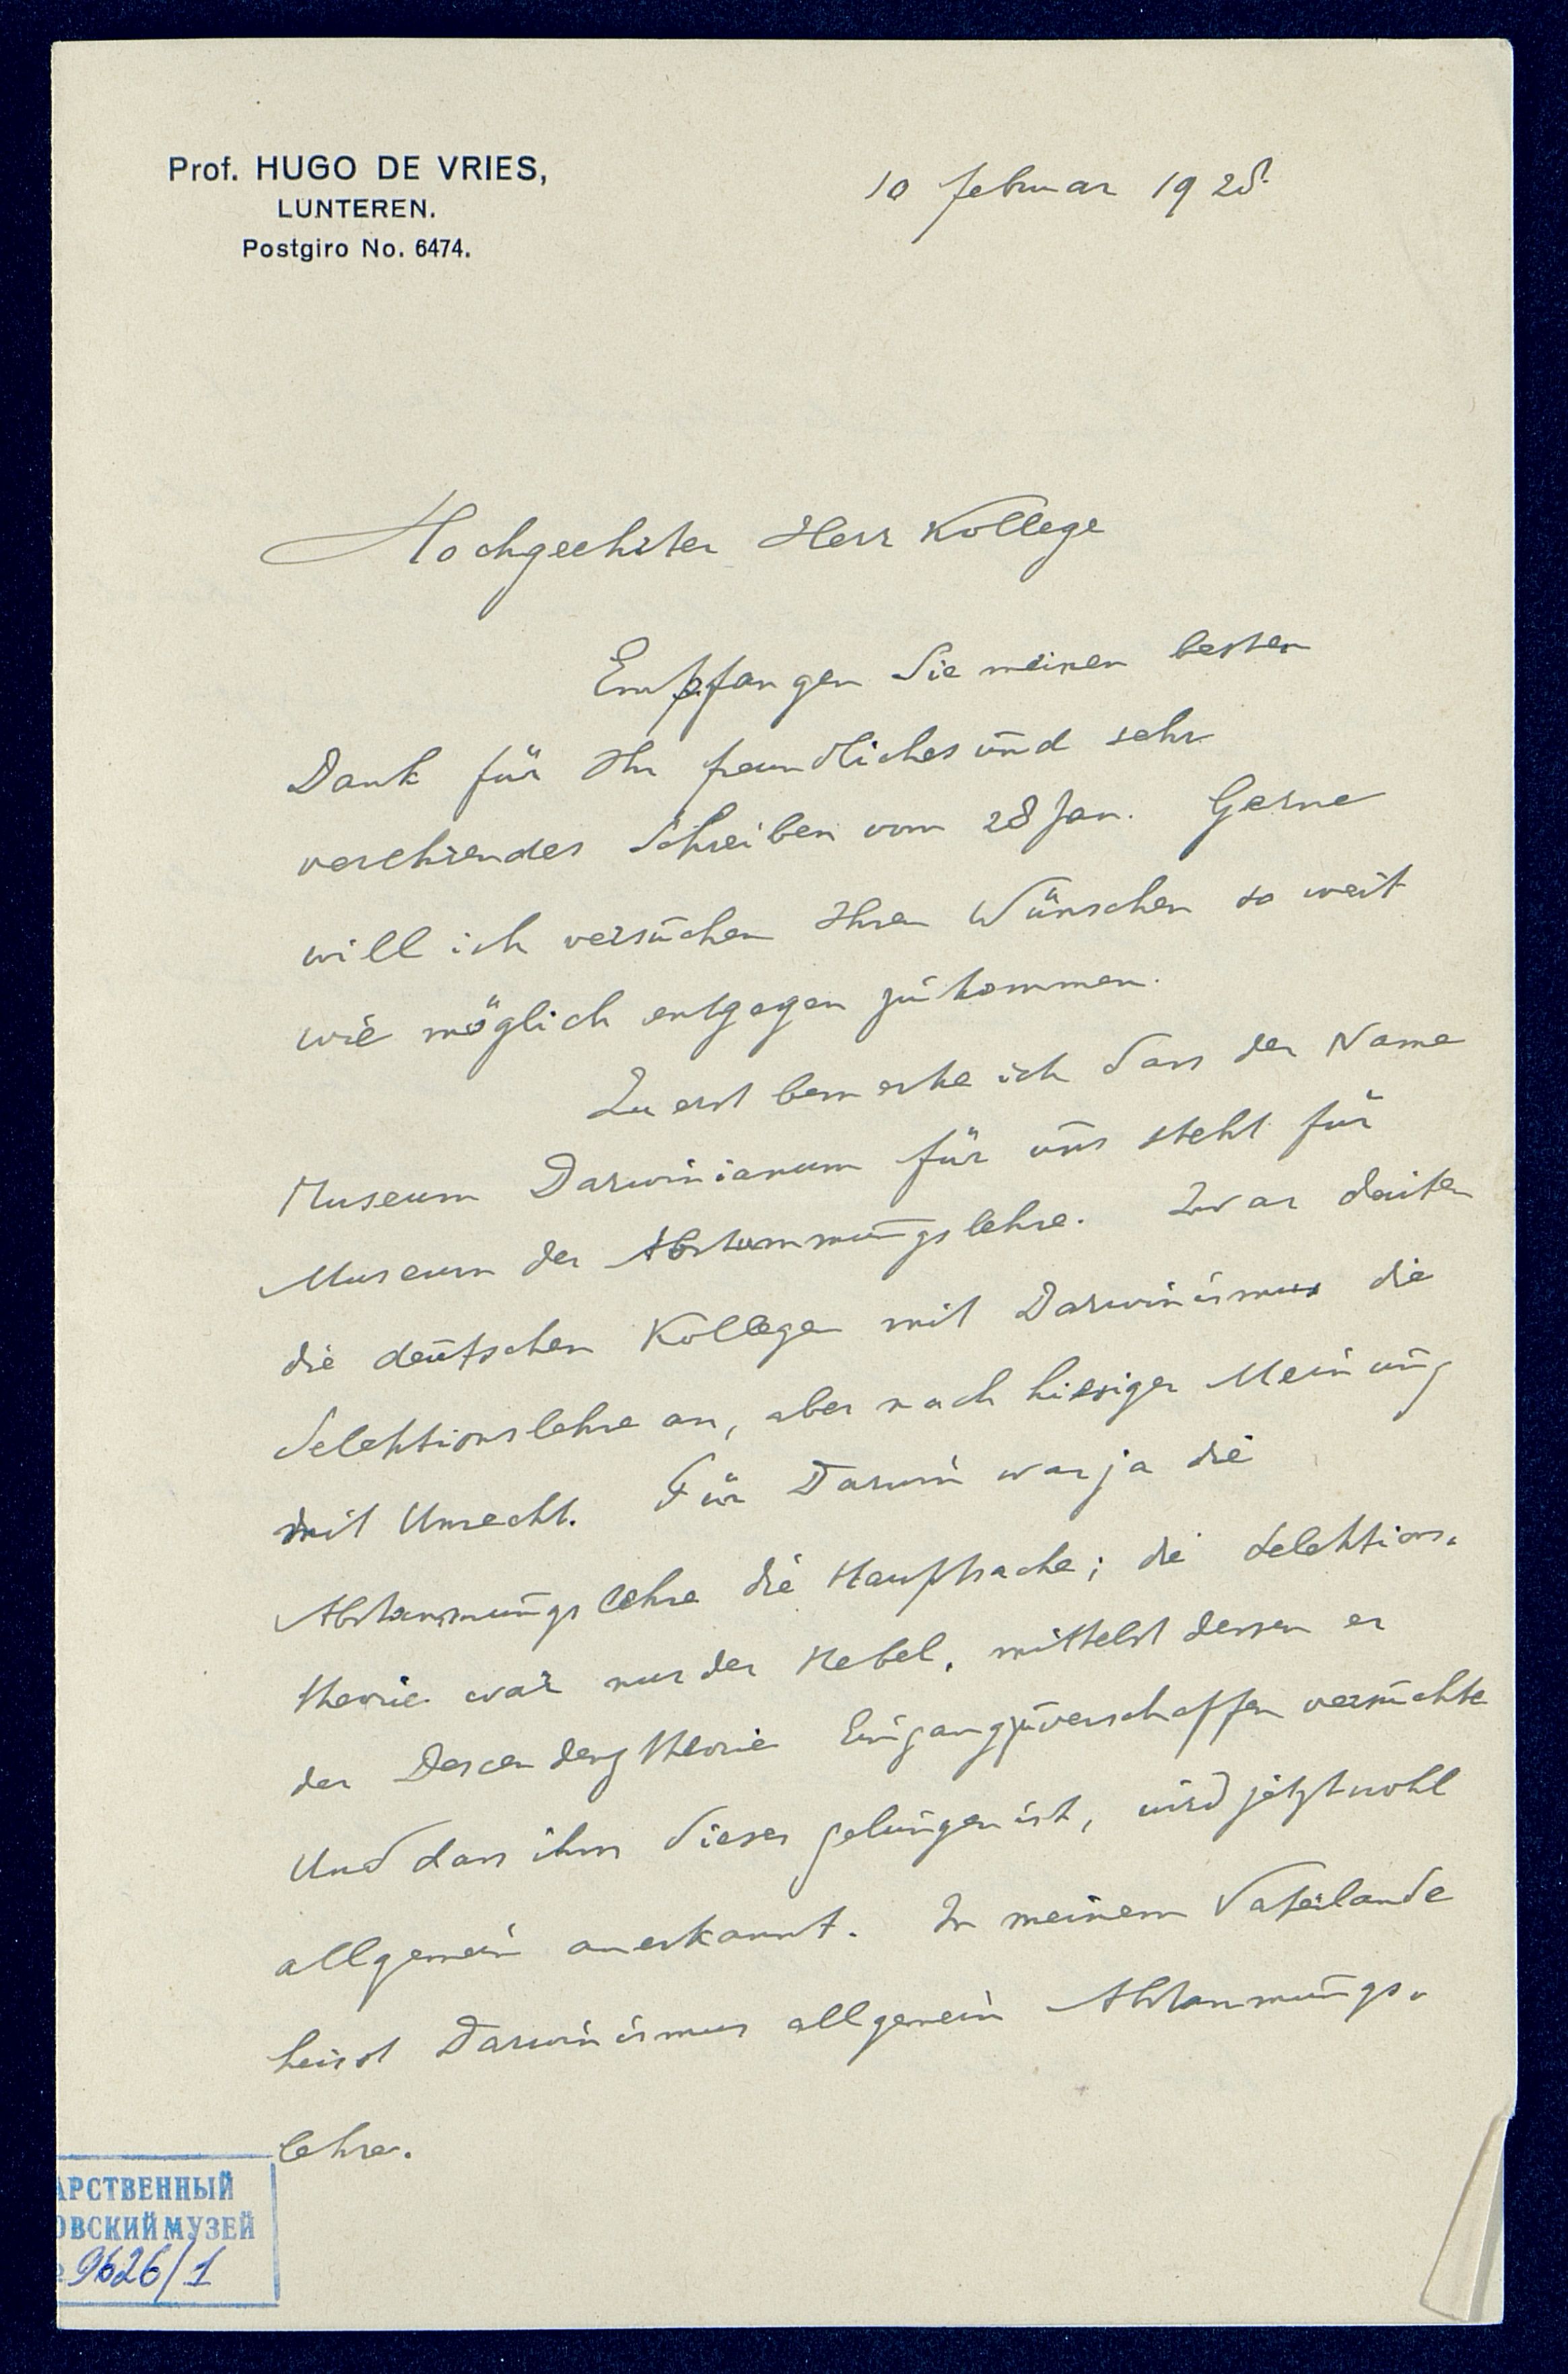 Prof. HUGO DE VRIES,
LUNTEREN.
Postgiro No. 6474.
10 februar 1928.
Hochgeehrter Herr Kollege
Empfangen Sie meinen besten
Dank für Ihr freundliches und sehr
verehrendes Schreiben vom 28 Jan. Gerne
will ich versuchen Ihren Wünschen so weit
wie möglich entgegen zu kommen.
Zu erst bemerke ich dass der Name
Museum Darwinianum für uns steht für
Museum der Abstammungslehre. Zwar deuten
die deutschen Kollegen mit Darwinismus die
Selektionslehre an, aber nach hiesiger Meinung
mit Unrecht. Für Darwin war ja die
Abstammungslehre die Hauptsache; die Selektions-
theorie war nur der Hebel, mittelst dessen er
der Descendenztheorie Eingang zu verschaffen versuchte
Und dass ihm dieses gelungen ist, wird jetzt wohl
allgemein anerkannt. In meinem Vaterlande
heisst Darwinismus allgemein Abstammungs-
lehre.
АРСТВЕННЫЙ
ОВСКИЙ МУЗЕЙ
9626/1